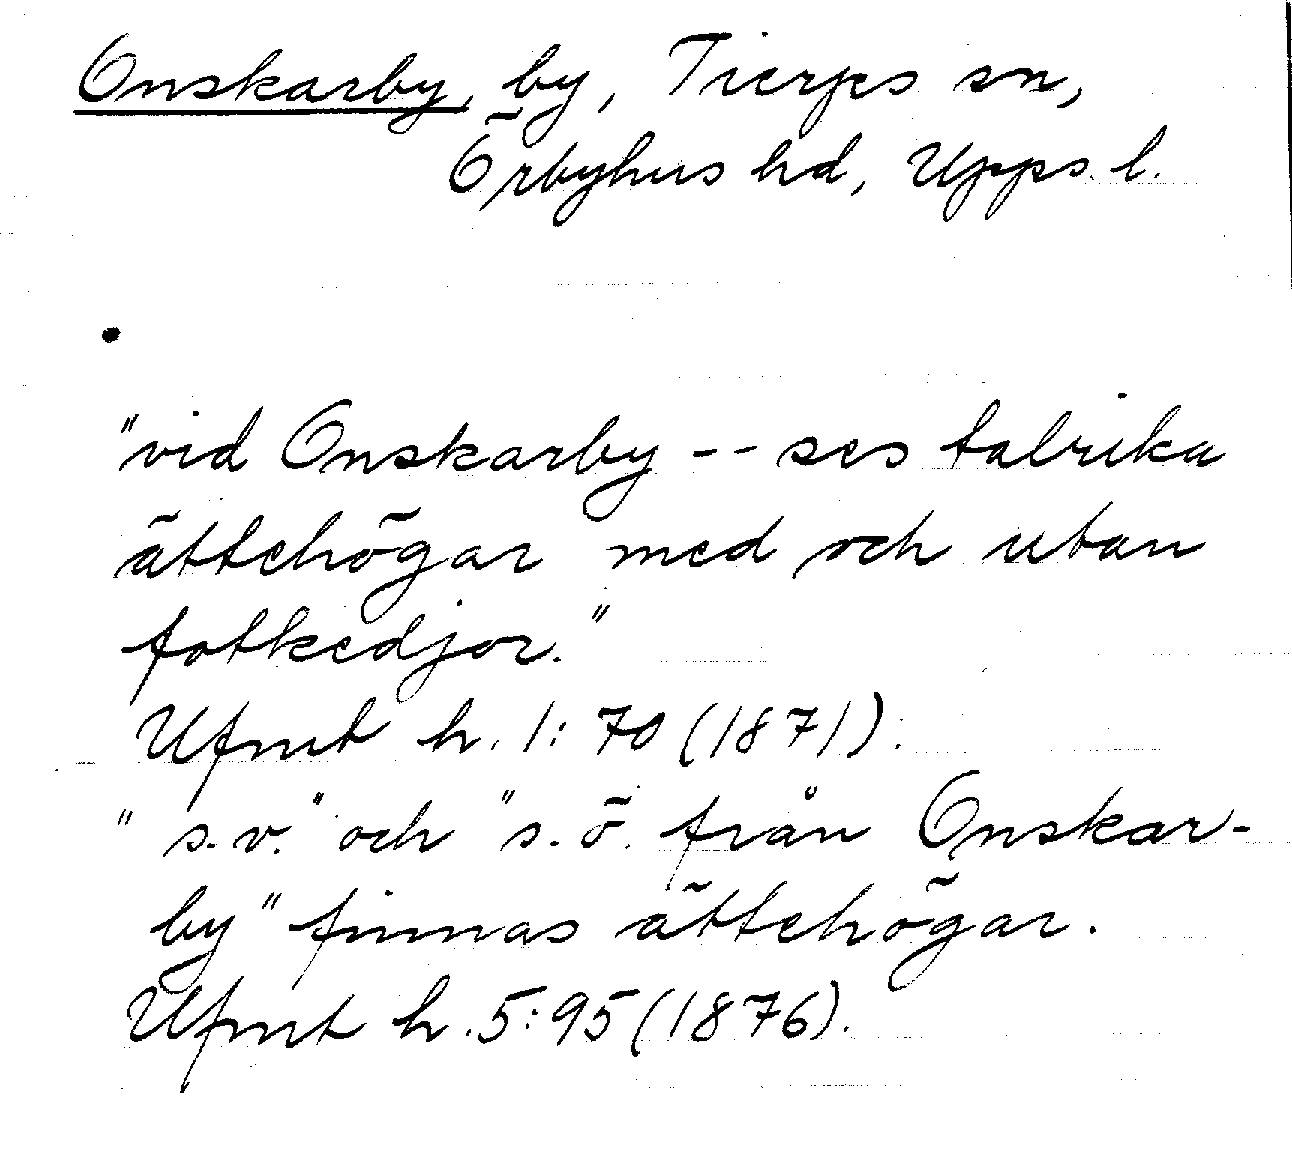 Onskarby, by, Tierps sn,
Örbyhus hd, Upps. l.
"vid Onskarby -- ses talrika
ättehögar med och uban
fotkedjor."
Ufmt h. 1:70 (1871).
" s.v." och "s.ö. från Onskar-
by" finnas ättehögar.
Ufmt h. 5:95 (1876).